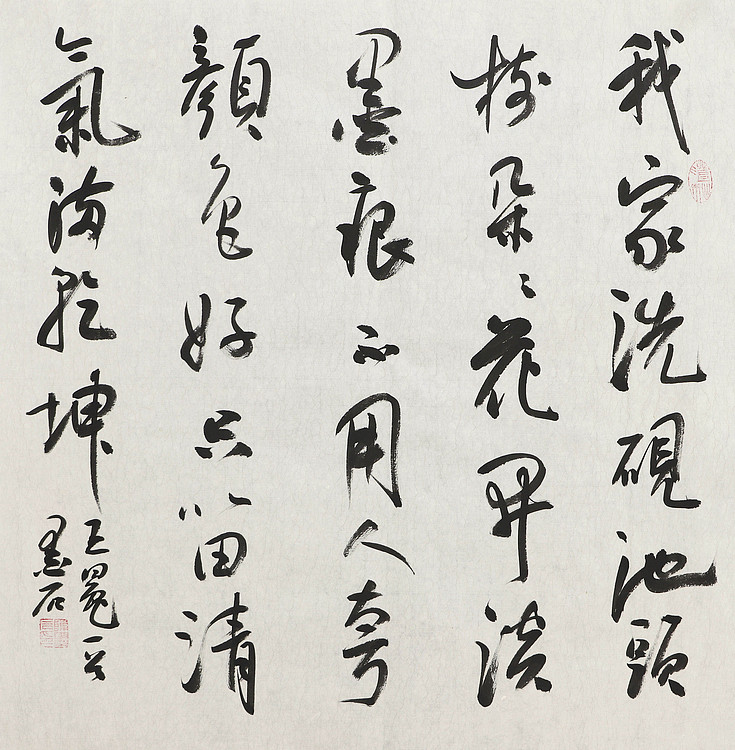 我家洗硯池頭
樹朵〻花開淡
墨痕不用人夸
顏色好只留清
氣滿乾坤
王冕
墨石